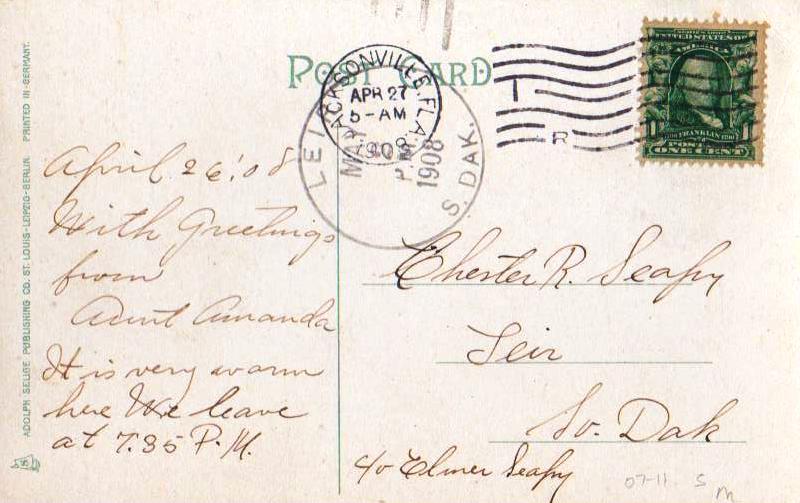 POST CARD
JACKSONVILLE, FLA.
APR 27
5-AM
1908
MAY
P.M.
1908
S. DAK.
R
UNITED STATES OF
AMERICA
FRANKLIN
POSTAGE
ONE CENT
April 26 '08
With Greetings
from
Aunt Amanda
It is very warm
here We leave
at 7.35 P.M.
Chester R. Seapy
Leir
So. Dak
c/o Elmer Seapy
07-11 S
m
ADOLPH SELIGE PUBLISHING CO. ST. LOUIS-LEIPZIG-BERLIN. PRINTED IN GERMANY.